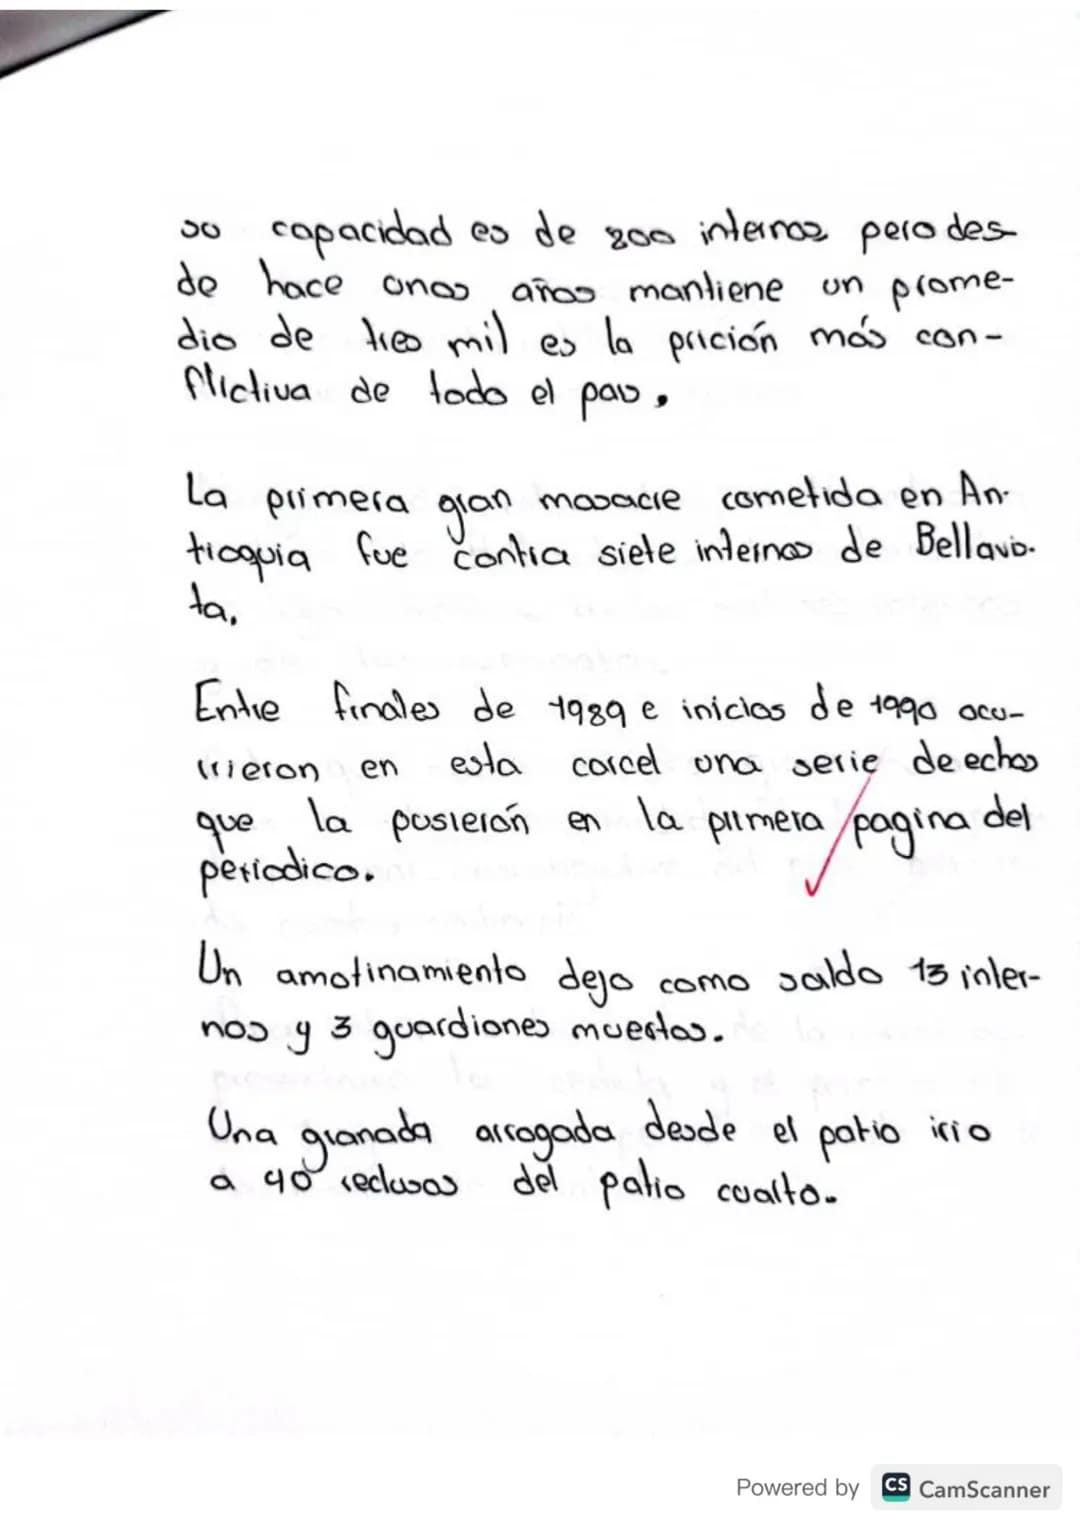 su capacidad es de 200 internos pero des-
de hace unos años mantiene un prome-
dio de tres mil es la prición más con-
flictiva de todo el pais.
La primera gran masacre cometida en An-
tioquia fue contra siete internos de Bellavis-
ta.
Entre finales de 1989 e inicios de 1990 ocu-
rrieron en esta carcel una serie de echos
que la posierón en la primera pagina del
periodico.
Un amotinamiento dejo como saldo 13 inter-
nos y 3 guardianes muertos.
Una granada arrogada desde el patio irio
a 40 reclusos del patio cuarto.
Powered by CS CamScanner